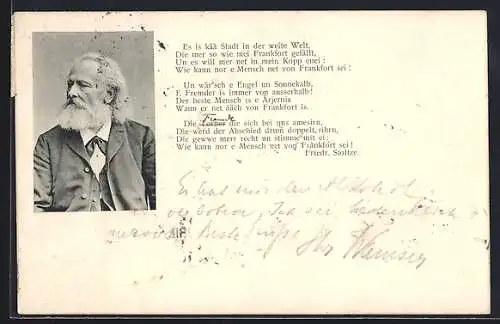 Es is kää Stadt in der weite Welt,
Die mer so wie mei Frankfort gefällt,
Un es will mer net in mein Kopp enei:
Wie kann nor e Mensch net von Frankfort sei!
Un wär'sch e Engel un Sonnekalb,
E Fremder is immer von ausserhalb!
Der beste Mensch is e Ärjernis
Wann er net ääch von Frankfort is.
Fremde
Die die sich bei uns amesirn,
Die werd der Abschied drum doppelt rihrn,
Die gewwe merr recht un stimme mit ei:
Wie kann nor e Mensch net von Frankfort sei!
Friedr. Stoltze.
Er hat mir den Alkohol
verboten,
nervös. Beste Grüße